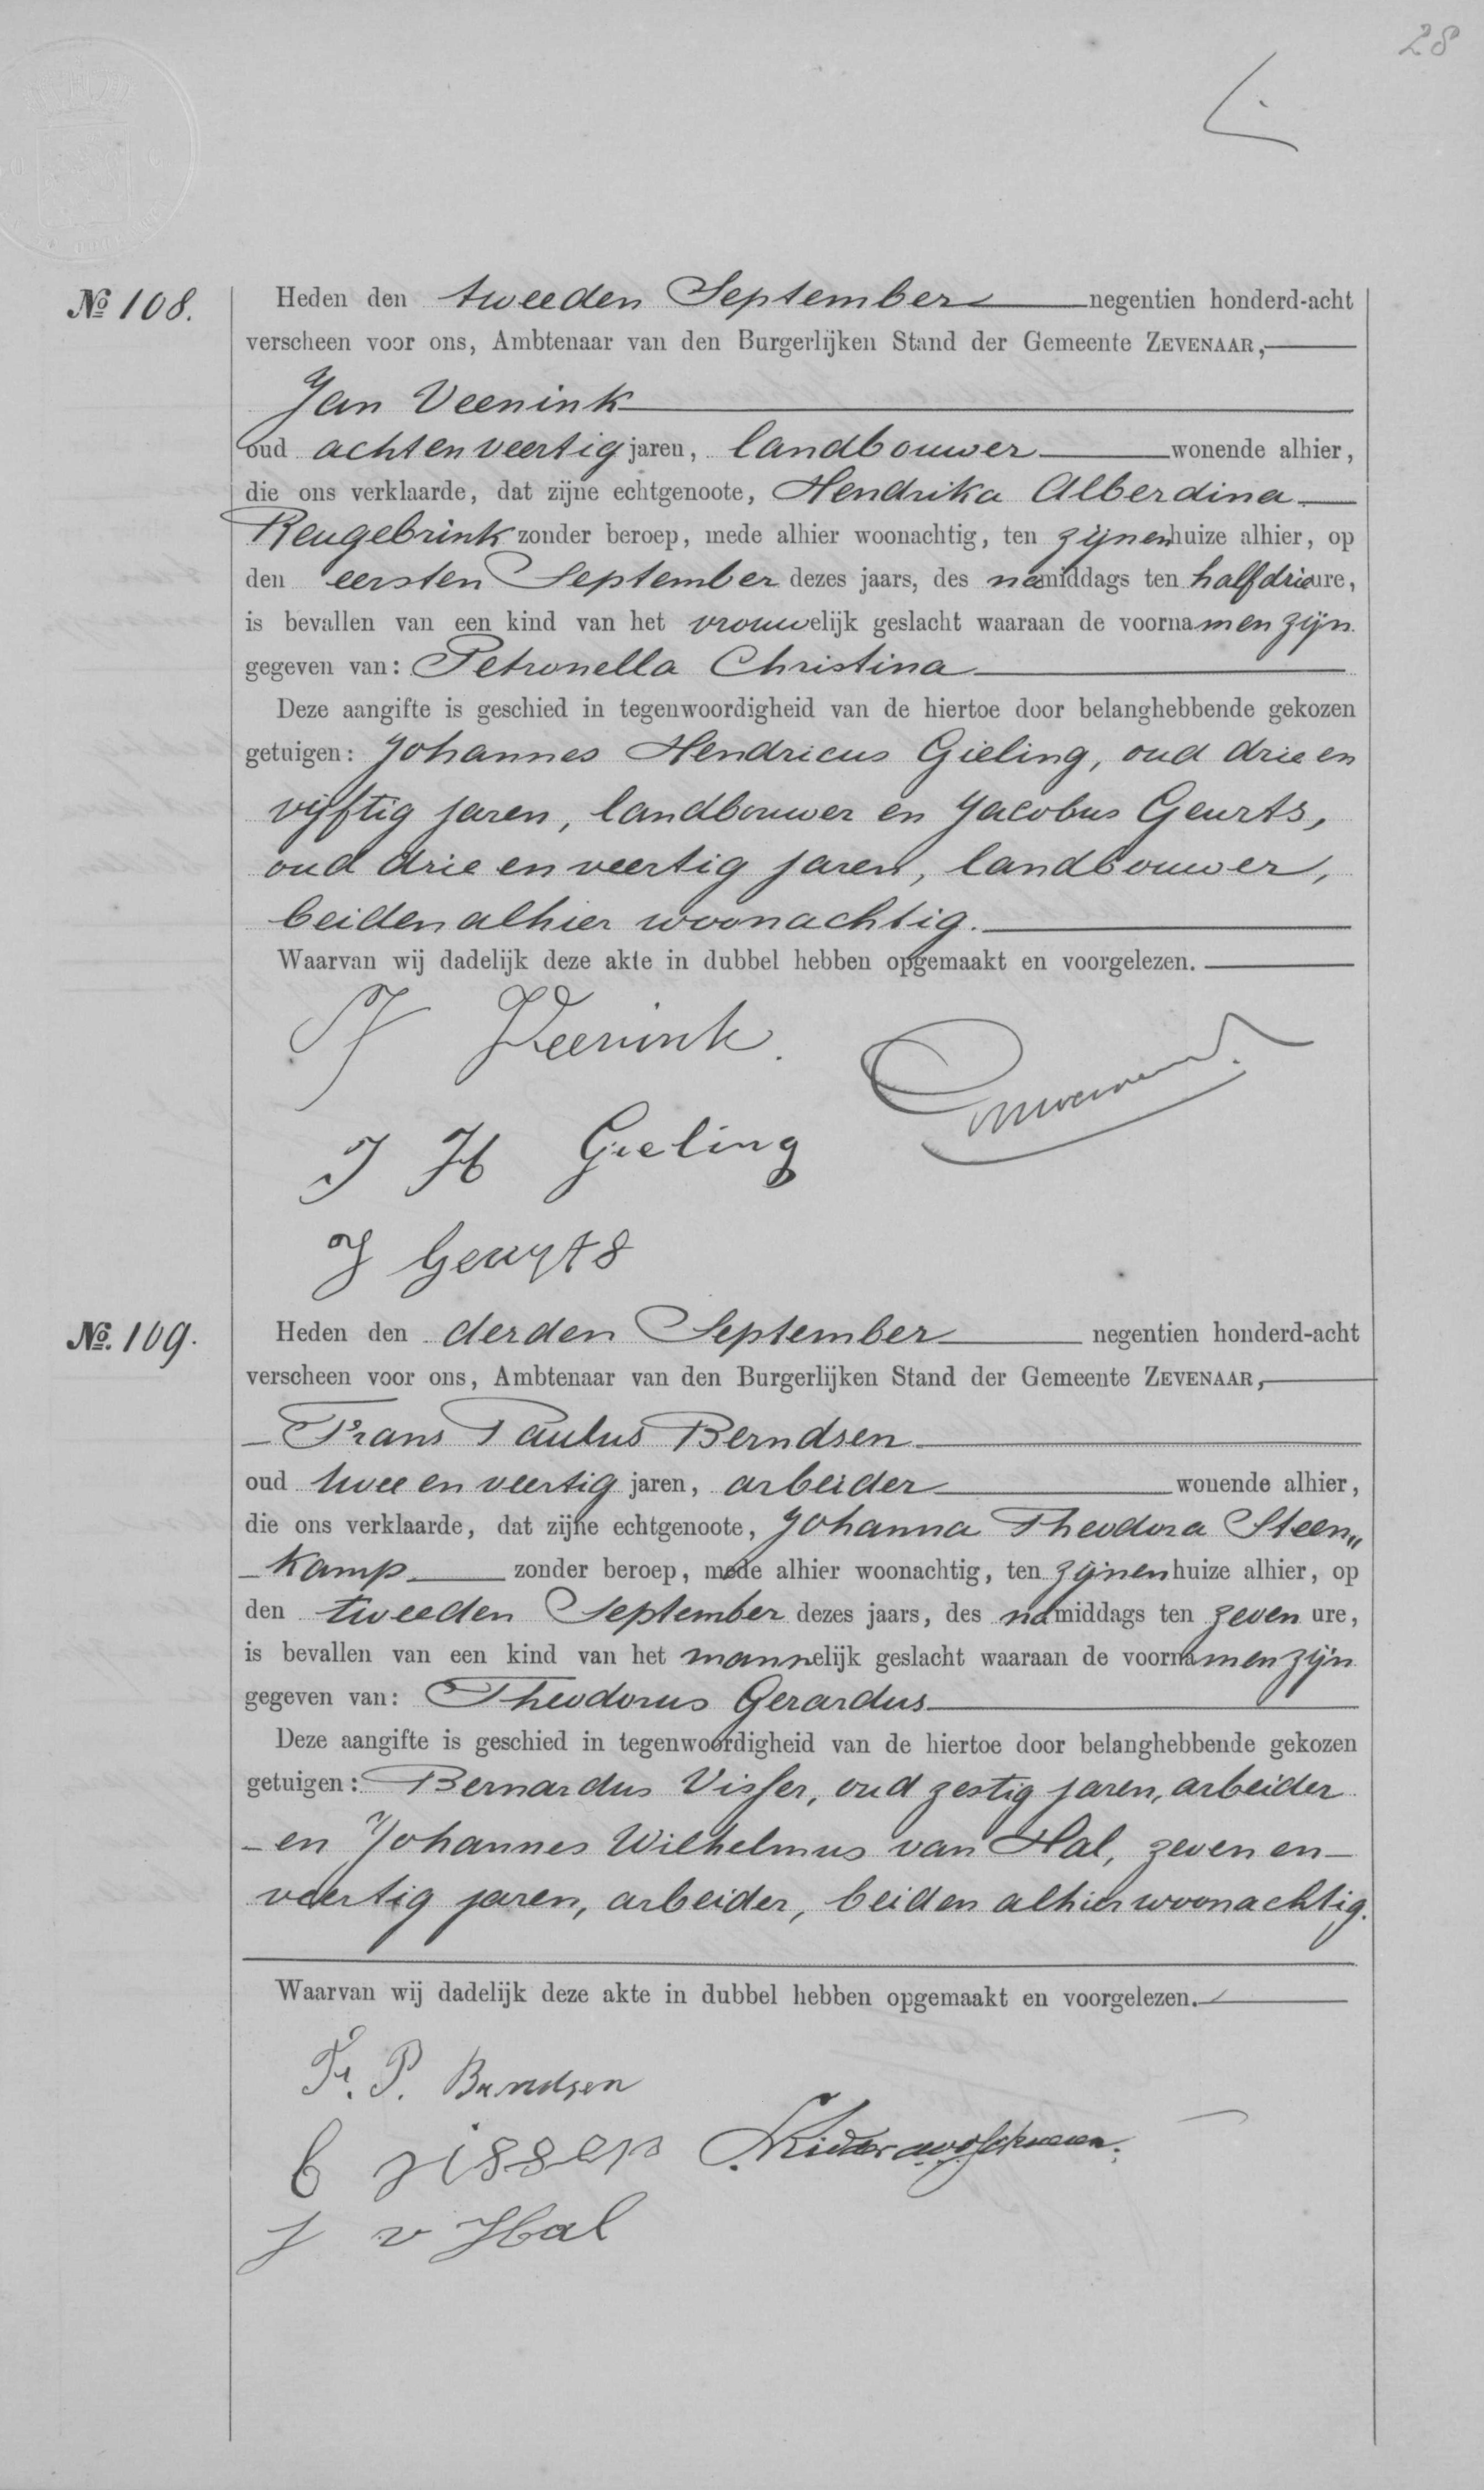 28
№ 108.
Heden den tweeden September negentien honderd-acht
verscheen voor ons, Ambtenaar van den Burgerlijken Stand der Gemeente ZEVENAAR,
Jan Veenink
oud achtenveertig jaren, landbouwer wonende alhier,
die ons verklaarde, dat zijne echtgenoote, Hendrika Alberdina
Reugebrink zonder beroep, mede alhier woonachtig, ten zijnenhuize alhier, op
den eersten September dezes jaars, des namiddags ten halfdrie ure,
is bevallen van een kind van het vrouwelijk geslacht waaraan de voornamen zijn
gegeven van: Petronella Christina
Deze aangifte is geschied in tegenwoordigheid van de hiertoe door belanghebbende gekozen
getuigen: Johannes Hendricus Gieling, oud drie en
vijftig jaren, landbouwer en Jacobus Geurts,
oud drie en veertig jaren, landbouwer,
beiden alhier woonachtig.
Waarvan wij dadelijk deze akte in dubbel hebben opgemaakt en voorgelezen.
J Veenink.
J H Gieling
J Geurts
№. 109.
Heden den derden September negentien honderd-acht
verscheen voor ons, Ambtenaar van den Burgerlijken Stand der Gemeente ZEVENAAR,
Frans Paulus Berndsen
oud twee en veertig jaren, arbeider wonende alhier,
die ons verklaarde, dat zijne echtgenoote, Johanna Theodora Steen„
kamp zonder beroep, mede alhier woonachtig, ten zijnenhuize alhier, op
den tweeden September dezes jaars, des namiddags ten zeven ure,
is bevallen van een kind van het mannelijk geslacht waaraan de voornamen zijn
gegeven van: Theodorus Gerardus
Deze aangifte is geschied in tegenwoordigheid van de hiertoe door belanghebbende gekozen
getuigen: Bernardus Visser, oud zestig jaren, arbeider
en Johannes Wilhelmus van Hal, zeven en
veertig jaren, arbeider, beiden alhier woonachtig.
Waarvan wij dadelijk deze akte in dubbel hebben opgemaakt en voorgelezen.
Fr. P. Berndsen
J v Hal